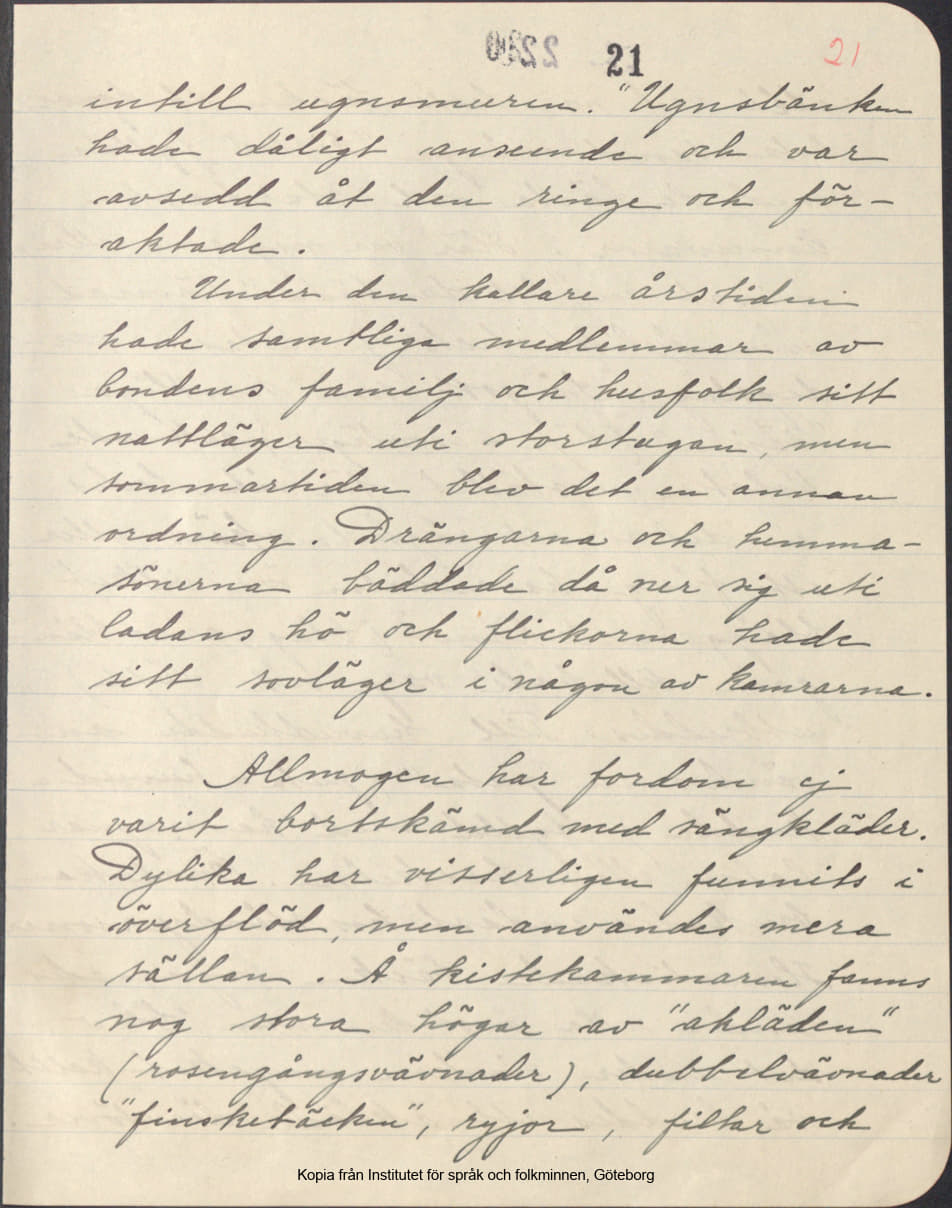 21 21
intill ugnsmuren. "Ugnsbänken
hade dåligt anseende och var
avsedd åt den ringe och för-
aktade.
Under den kallare årstiden
hade samtliga medlemmar av
bondens familj och husfolk sitt
nattläger uti storstugan, men
sommartiden blev det en annan
ordning. Drängarna och hemma-
sönerna bäddade då ner sig uti
ladans hö och flickorna hade
sitt sovläger i någon av kamrarna.
Allmogen har fordom ej
varit bortskämd med sängkläder.
Dylika har visserligen funnits i
överflöd, men användes mera
sällan. Å kistekammaren fanns
nog stora högar av "akläden"
(rosengångsvävnader), dubbelvävnader
"finsketäcken", ryjor, filtar och
Kopia från Institutet för språk och folkminnen, Göteborg